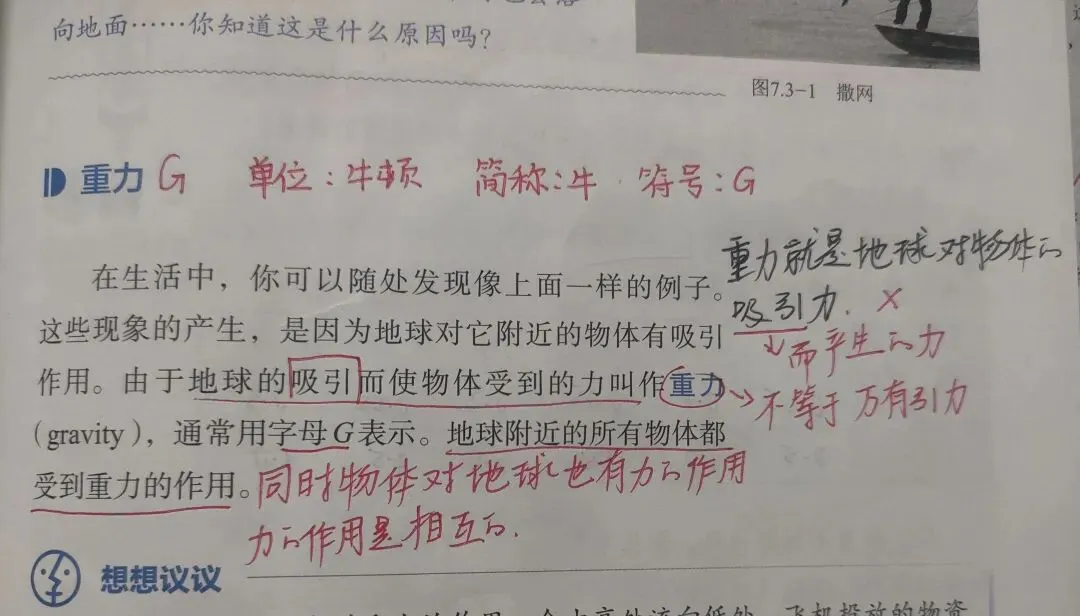 向地面……你知道这是什么原因吗？
图7.3-1 撒网
重力 G 单位：牛顿 简称：牛 符号：G
在生活中，你可以随处发现像上面一样的例子。
这些现象的产生，是因为地球对它附近的物体有吸引
作用。由于地球的吸引而使物体受到的力叫作重力
(gravity)，通常用字母G表示。地球附近的所有物体都
受到重力的作用。
重力就是地球对物体的
吸引力. ×
↓而产生的力
→不等于万有引力
同时物体对地球也有力的作用
力的作用是相互的.
想想议议